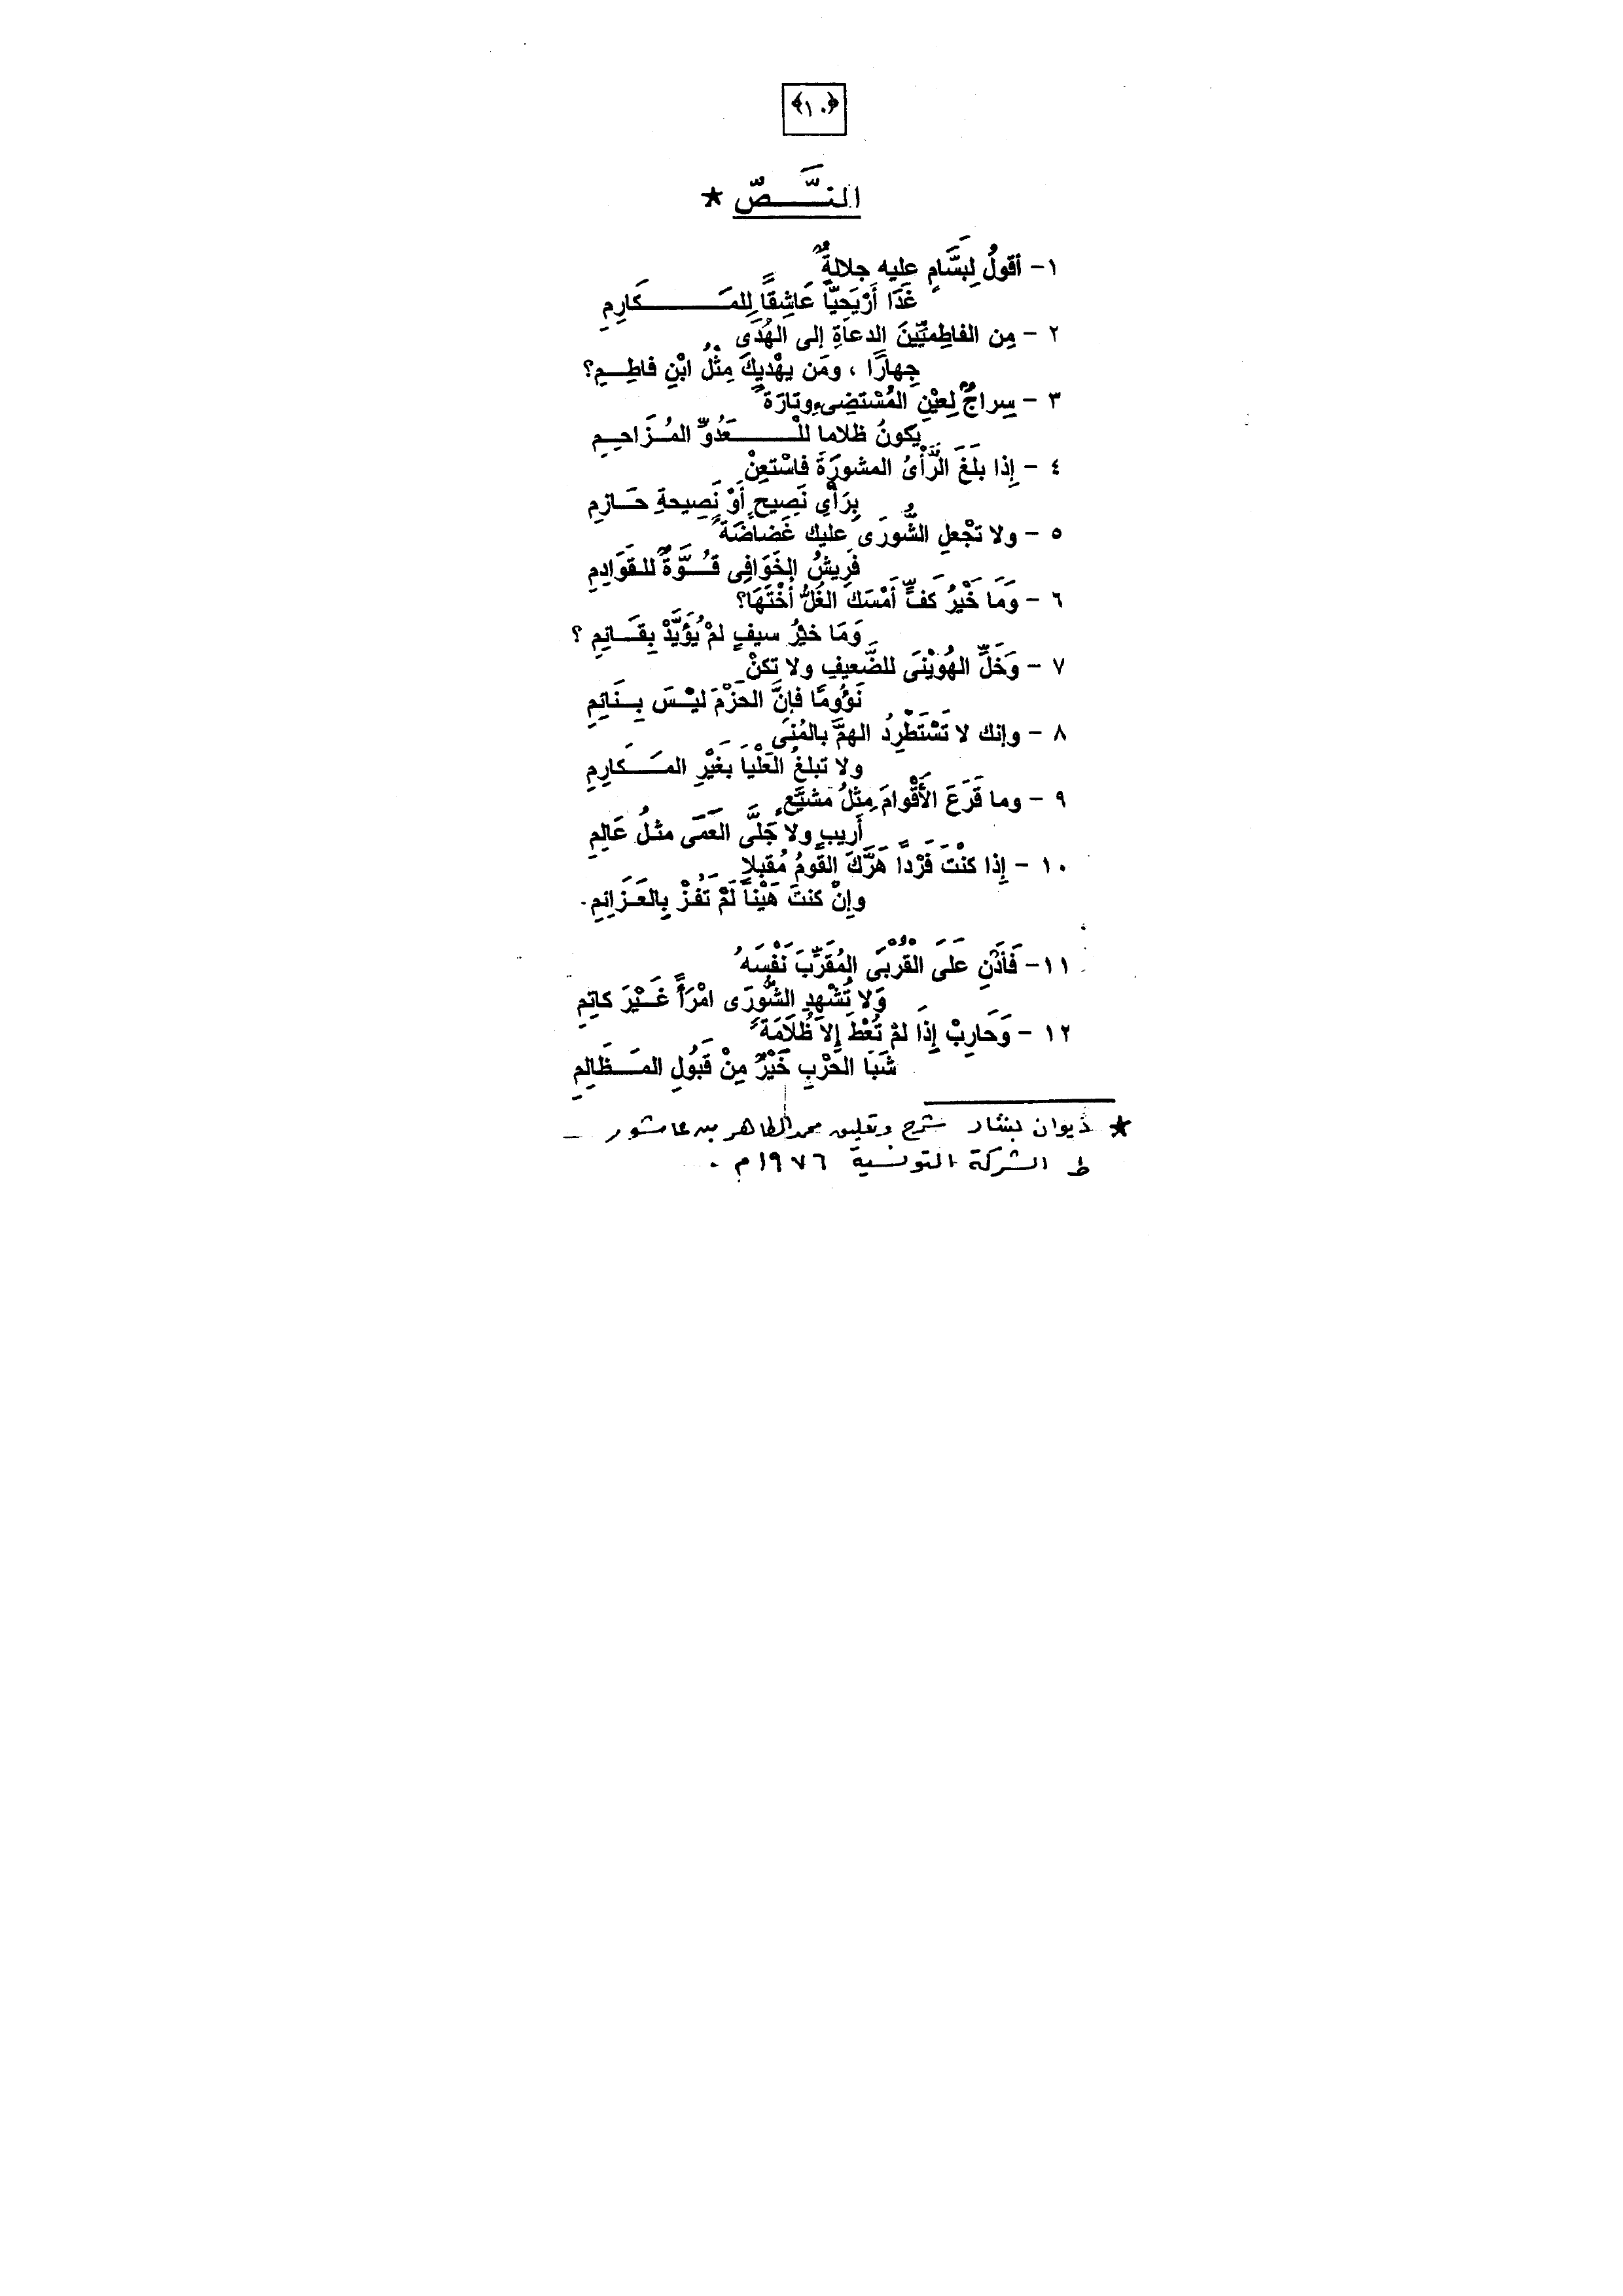 ﴿١٠﴾
النَّـــصّ ★
١- أقولُ لِبَسَّامٍ عليه جلالةٌ
غَدَا أَرْيَحِيًّا عَاشِقًا لِلمَـــــكَارِمِ
٢ - مِن الفاطِمِيِّينَ الدعاةِ إلى الهُدَى
جِهارًا ، ومَن يهْدِيكَ مِثْلُ ابْنِ فاطِـمِ؟
٣ - سِراجٌ لِعيْنِ المُسْتضِىءِ وتارَةً
يكونُ ظلاما للْـــعَدُوِّ المُـزَاحِـمِ
٤ - إِذا بلَغَ الرَّأْىُ المشورَةَ فاسْتعِنْ
بِرَأْىِ نَصِيحٍ أوْ نَصِيحةِ حَـازِمِ
٥ - ولا تجْعلِ الشُّورَى عليك غَضاضَةً
فَرِيشُ الخَوَافِى قُــوَّةٌ للقَوَادِمِ
٦ - وَمَا خَيْرُ كَفٍّ أمْسَكَ الغُلُّ أُخْتَهَا؟
وَمَا خيْرُ سيفٍ لمْ يُؤَيَّدْ بِقَـائِمِ ؟
٧ - وَخَلِّ الهُوَيْنَى للضَّعِيفِ ولا تكنْ
نَؤُومًا فإِنَّ الحَزْمَ ليْـسَ بِـنَائِمِ
٨ - وإنك لا تَسْتَطْرِدُ الهمَّ بالمُنَى
ولا تبلغُ العَلْيَا بغَيْرِ المَــكَارِمِ
٩ - وما قَرَعَ الأَقْوامَ مِثلُ مُشَيَّعٍ
أَرِيبٍ ولا جَلَّى العَمَى مثلُ عَالِمِ
١٠ - إِذا كنْتَ فَرْداً هَرَّكَ القَومُ مُقبلا
وإِنْ كنتَ هَيْناً لَمْ تَفُزْ بِالعَـزَائِمِ.
١١- فَأَدْنِ عَلَى القُرْبَى المُقَرِّبَ نَفْسَهُ
وَلا تُشْهِدِ الشُّورَى امْرَأً غَـيْرَ كاتِمِ
١٢ - وَحَارِبْ إِذَا لمْ تُعْطَ إِلاَّ ظُلَامَةً
شَبَا الحَرْبِ خَيْرٌ مِنْ قَبُولِ المَــظَالِمِ
★ ديوان بشار شرح وتعليق محمد الطاهر بن عاشور –
ط الشركة التونسية ١٩٧٦م .